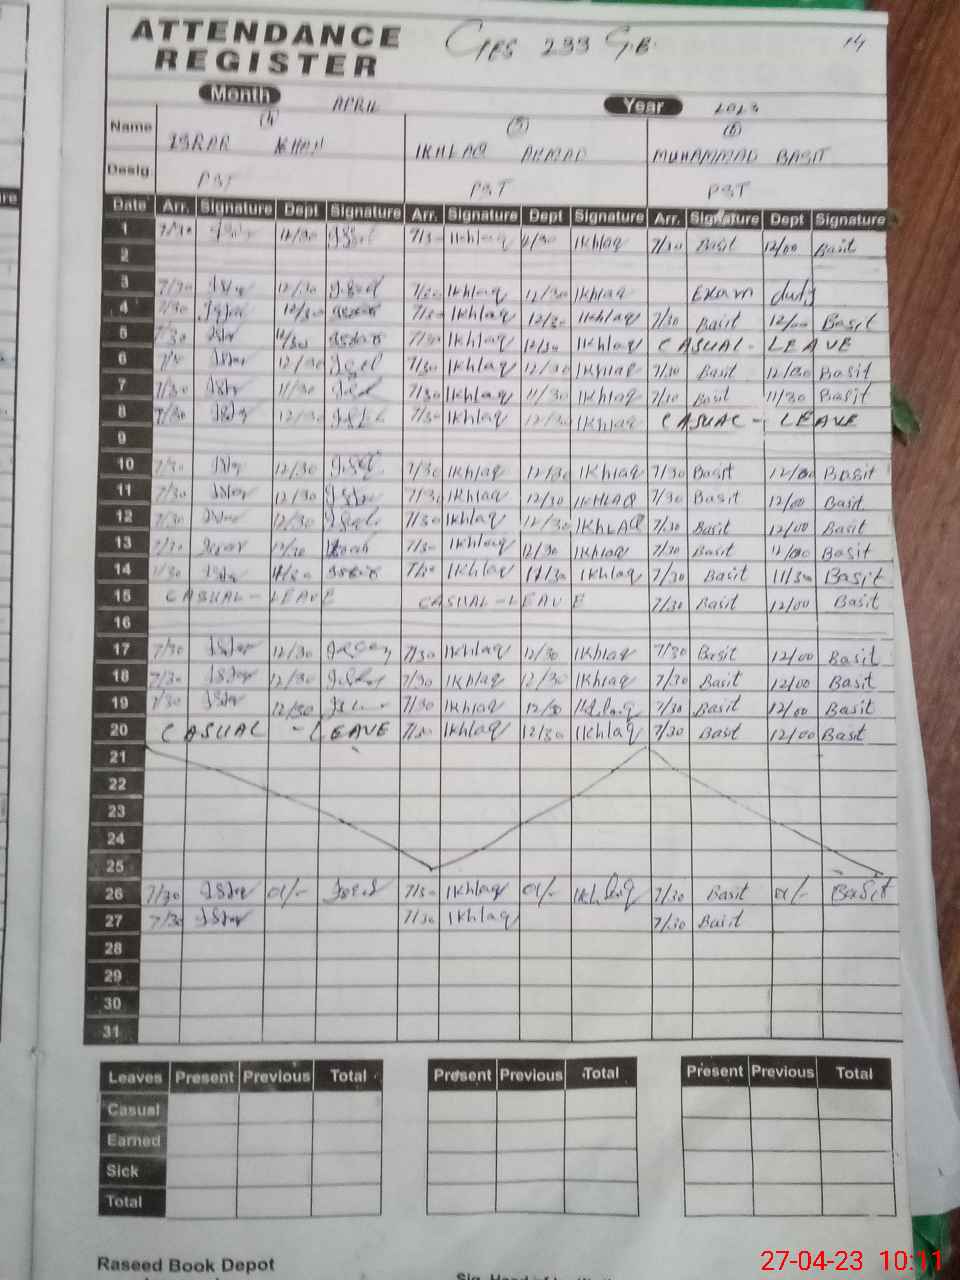 ATTENDANCE
REGISTER
GES 233 G.B. 14
Month APRIL Year 2023
(4) (5) (6)
Name ISRAR KHAN IKHLAQ AHMAD MUHAMMAD BASIT
Desig. PST PST PST
Date Arr. Signature Dept Signature Arr. Signature Dept Signature Arr. Signature Dept Signature
1 7/30 12/30 7/30 Ikhlaq 12/30 Ikhlaq 7/30 Basit 12/00 Basit
2
3 7/30 12/30 7/30 Ikhlaq 12/30 Ikhlaq Exam duty
4 7/30 12/30 7/30 Ikhlaq 12/30 Ikhlaq 7/30 Basit 12/00 Basit
5 7/30 12/30 7/30 Ikhlaq 12/30 Ikhlaq CASUAL - LEAVE
6 12/30 7/30 Ikhlaq 12/30 Ikhlaq 7/30 Basit 12/00 Basit
7 7/30 11/30 7/30 Ikhlaq 11/30 Ikhlaq 7/30 Basit 11/30 Basit
8 7/30 12/30 7/30 Ikhlaq 12/30 Ikhlaq CASUAL - LEAVE
9
10 7/30 12/30 7/30 Ikhlaq 12/30 IKhlaq 7/30 Basit 12/00 Basit
11 7/30 12/30 7/30 Ikhlaq 12/30 IKHLAQ 7/30 Basit 12/00 Basit
12 7/30 12/30 7/30 Ikhlaq 12/30 IKhLAQ 7/30 Basit 12/00 Basit
13 7/30 12/30 7/30 Ikhlaq 12/30 Ikhlaq 7/30 Basit 12/00 Basit
14 7/30 11/30 7/30 Ikhlaq 11/30 Ikhlaq 7/30 Basit 11/30 Basit
15 CASUAL - LEAVE CASUAL - LEAVE 7/30 Basit 12/00 Basit
16
17 7/30 12/30 7/30 Ikhlaq 12/30 IKhlaq 7/30 Basit 12/00 Basit
18 7/30 12/30 7/30 Ikhlaq 12/30 IKhlaq 7/30 Basit 12/00 Basit
19 7/30 12/30 7/30 IKhlaq 12/30 Ikhlaq 7/30 Basit 12/00 Basit
20 CASUAL - LEAVE 7/30 Ikhlaq 12/30 Ikhlaq 7/30 Basit 12/00 Basit
21
22
23
24
25
26 7/30 7/30 Ikhlaq Ikhlaq 7/30 Basit Basit
27 7/30 7/30 Ikhlaq 7/30 Basit
28
29
30
31
Leaves Present Previous Total Present Previous Total Present Previous Total
Casual
Earned
Sick
Total
Raseed Book Depot
27-04-23 10:11